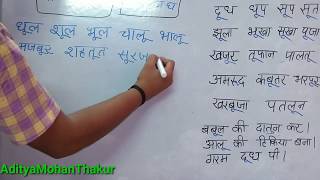 धूल शूल भूल चालू भालू
मजबूर शहतूत सूरज
दूध धूप सूप सूत
झूला भूखा सूखा पूजा
खजूर तूफान पालतू
अमरूद कबूतर भरपूर
खरबूजा पतलून
बबूल की दातून कर।
आलू की टिकिया बना।
गरम दूध पी।
AdityaMohanThakur